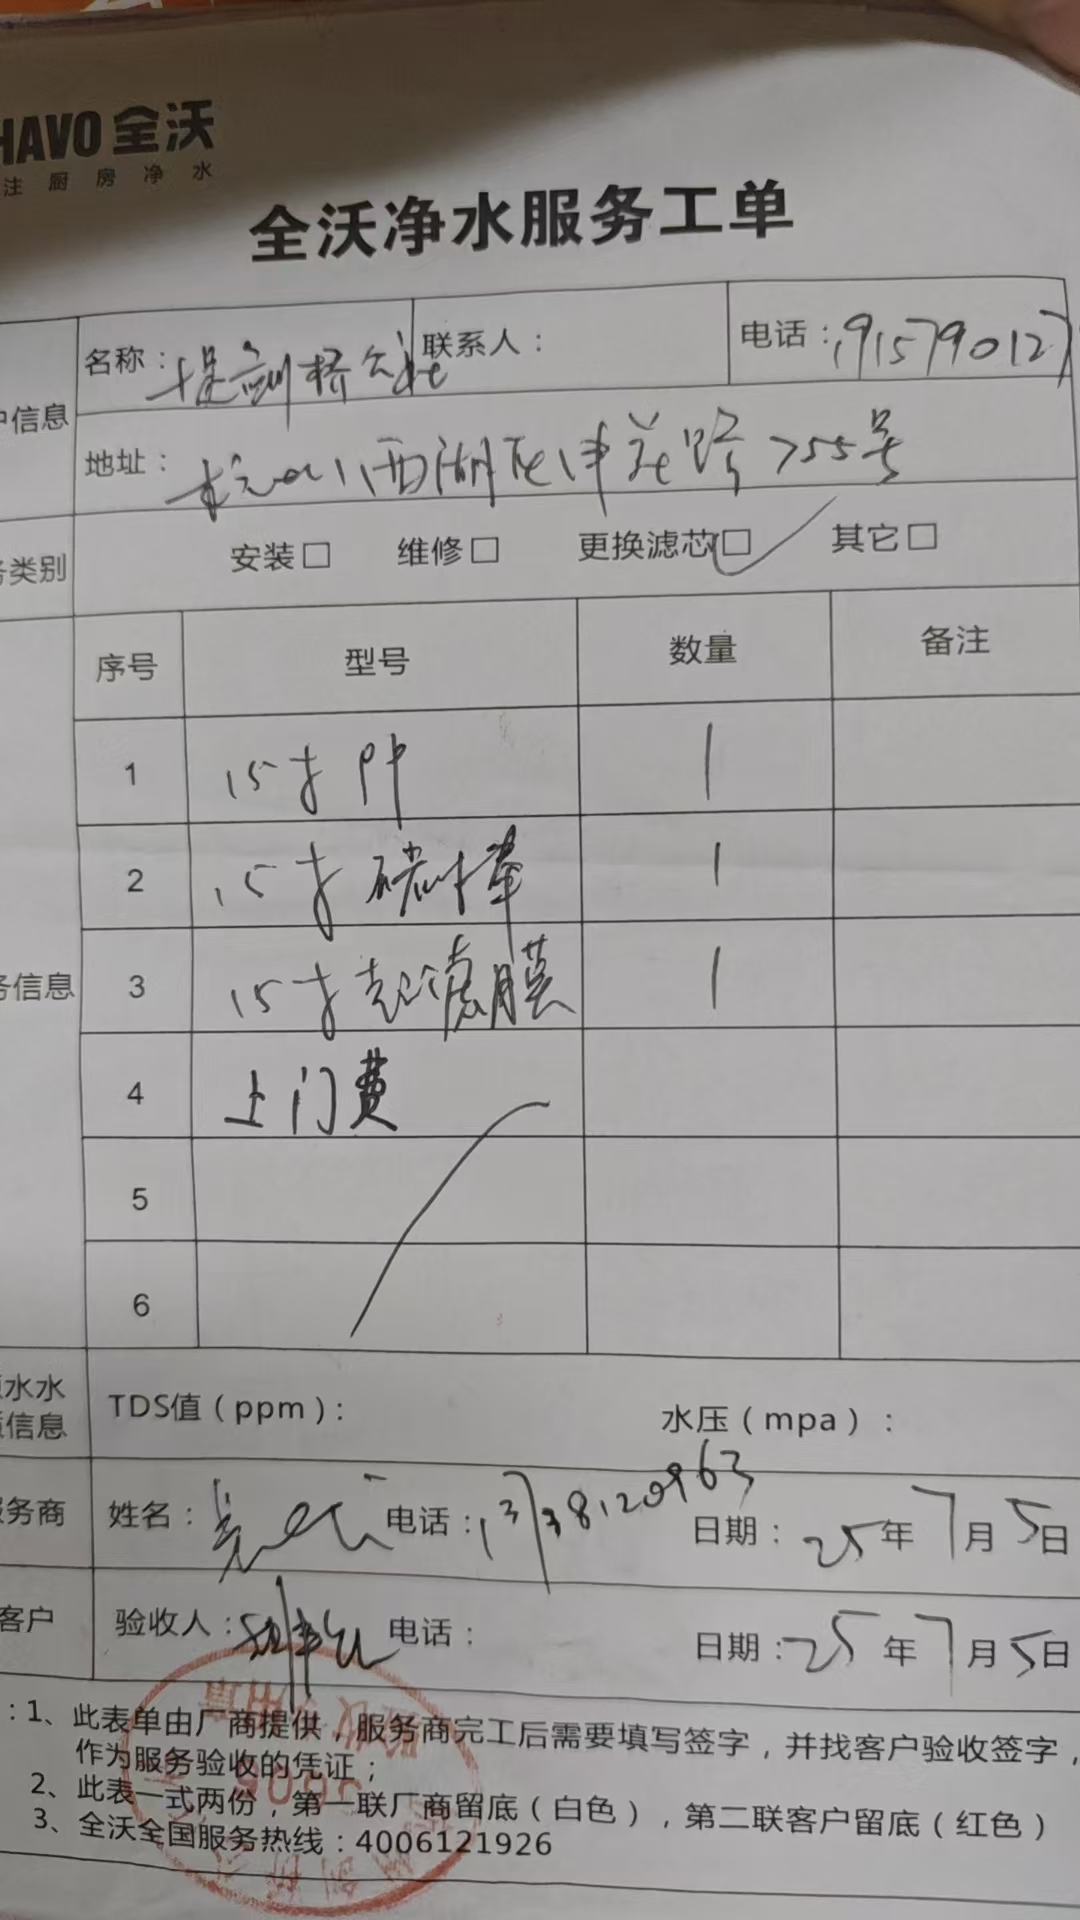 HAVO 全沃
注厨房净水
全沃净水服务工单
户信息
名称：堤剑桥公社 联系人： 电话：1915790127
地址：杭州西湖区申花路755号
务类别 安装□ 维修□ 更换滤芯□ 其它□
序号 型号 数量 备注
1 15寸PP 1
2 15寸碳棒 1
务信息 3 15寸超滤膜 1
4 上门费
5
6
水水 TDS值（ppm）： 水压（mpa）：
信息
服务商 姓名： 电话：13738120963 日期：25年7月5日
客户 验收人： 电话： 日期：25年7月5日
：1、此表单由厂商提供，服务商完工后需要填写签字，并找客户验收签字，
作为服务验收的凭证；
2、此表一式两份，第一联厂商留底（白色），第二联客户留底（红色）
3、全沃全国服务热线：4006121926